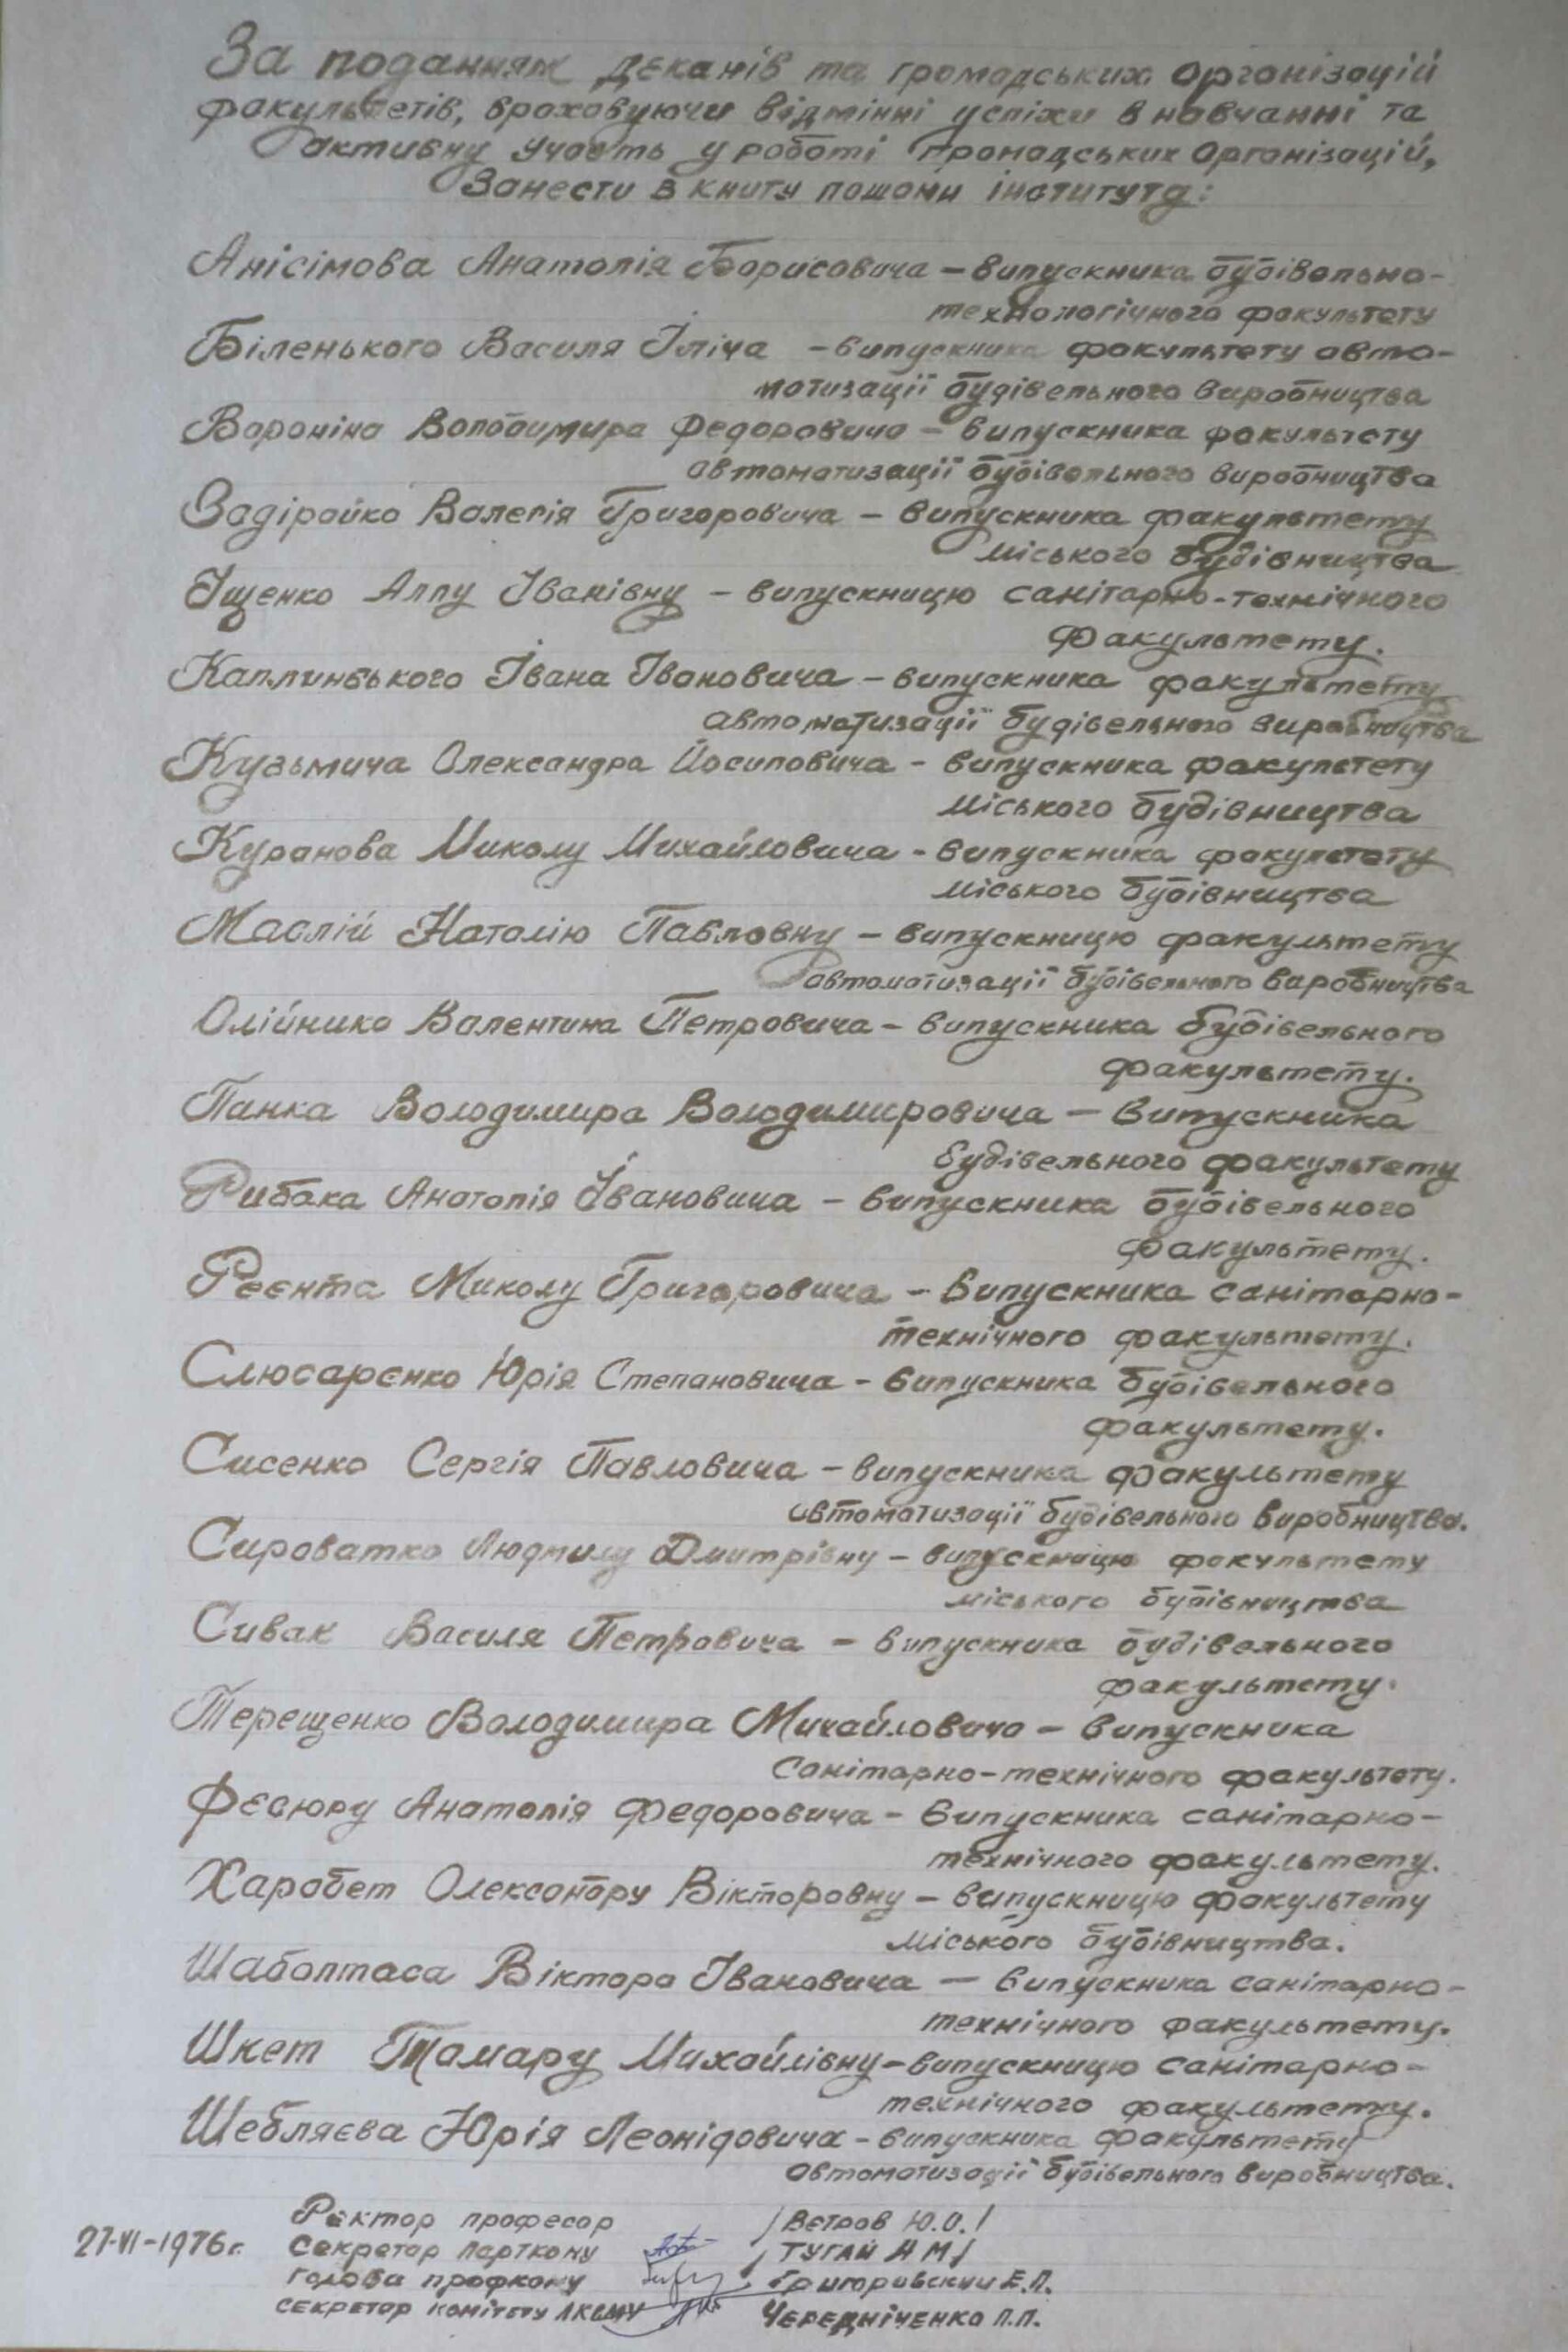 За поданням деканів та громадських організацій
факультетів, враховуючи відмінні успіхи в навчанні та
активну участь у роботі громадських організацій,
Занести в книгу пошани інституту:
Анісімова Анатолія Борисовича – випускника будівельно-
технологічного факультету
Біленького Василя Ілліча – випускника факультету авто-
матизації будівельного виробництва
Вороніна Володимира Федоровича – випускника факультету
автоматизації будівельного виробництва
Задірайко Валерія Григоровича – випускника факультету
міського будівництва
Іщенко Аллу Іванівну – випускницю санітарно-технічного
факультету.
Каплинського Івана Івановича – випускника факультету
автоматизації будівельного виробництва
Кузьмича Олександра Йосиповича – випускника факультету
міського будівництва
Куранова Миколу Михайловича – випускника факультету
міського будівництва
Маслій Наталію Павловну – випускницю факультету
автоматизації будівельного виробництва
Олійника Валентина Петровича – випускника будівельного
факультету.
Панка Володимира Володимировича – випускника
будівельного факультету
Рибака Анатолія Івановича – випускника будівельного
факультету.
Реєнта Миколу Григоровича – випускника санітарно-
технічного факультету.
Слюсарєнко Юрія Степановича – випускника будівельного
факультету.
Сисенко Сергія Павловича – випускника факультету
автоматизації будівельного виробництва.
Сироватко Людмилу Дмитрівну – випускницю факультету
міського будівництва
Сивак Василя Петровича – випускника будівельного
факультету.
Терещенко Володимира Михайловича – випускника
санітарно-технічного факультету.
Фесюру Анатолія Федоровича – випускника санітарно-
технічного факультету.
Харабет Олександру Вікторовну – випускницю факультету
міського будівництва.
Шаболтаса Віктора Івановича – випускника санітарно-
технічного факультету.
Шкет Тамару Михайлівну – випускницю санітарно-
технічного факультету.
Шебляєва Юрія Леонідовича – випускника факультету
автоматизації будівельного виробництва.
Ректор професор /Ветров Ю.О./
27-VI-1976 г. Секретар парткому /ТУГАЙ А М/
голова профкому Григоровский Е.П.
секретар комітету ЛКСМУ ЧЕРЕДНІЧЕНКО П.П.